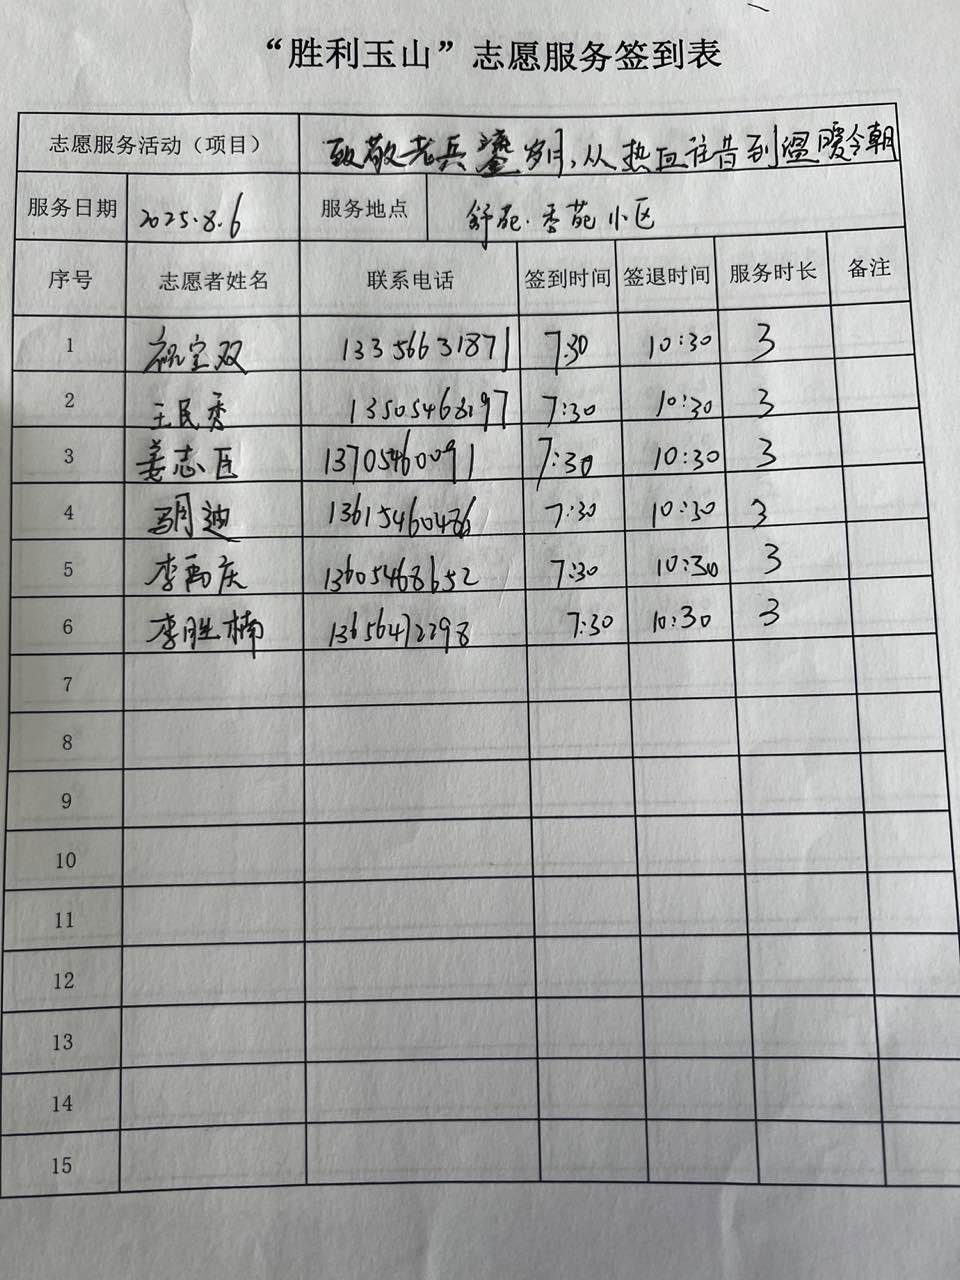 “胜利玉山”志愿服务签到表
志愿服务活动（项目） 致敬老兵鎏岁月，从热血往昔到温暖今朝
服务日期 2025.8.6 服务地点 舒苑.秀苑小区
序号 志愿者姓名 联系电话 签到时间 签退时间 服务时长 备注
1 祝宝双 13356631871 7:30 10:30 3
2 王民秀 13505468197 7:30 10:30 3
3 姜志臣 13705460091 7:30 10:30 3
4 马月迪 13615460486 7:30 10:30 3
5 李禹庆 13605468652 7:30 10:30 3
6 李胜楠 13656472298 7:30 10:30 3
7
8
9
10
11
12
13
14
15